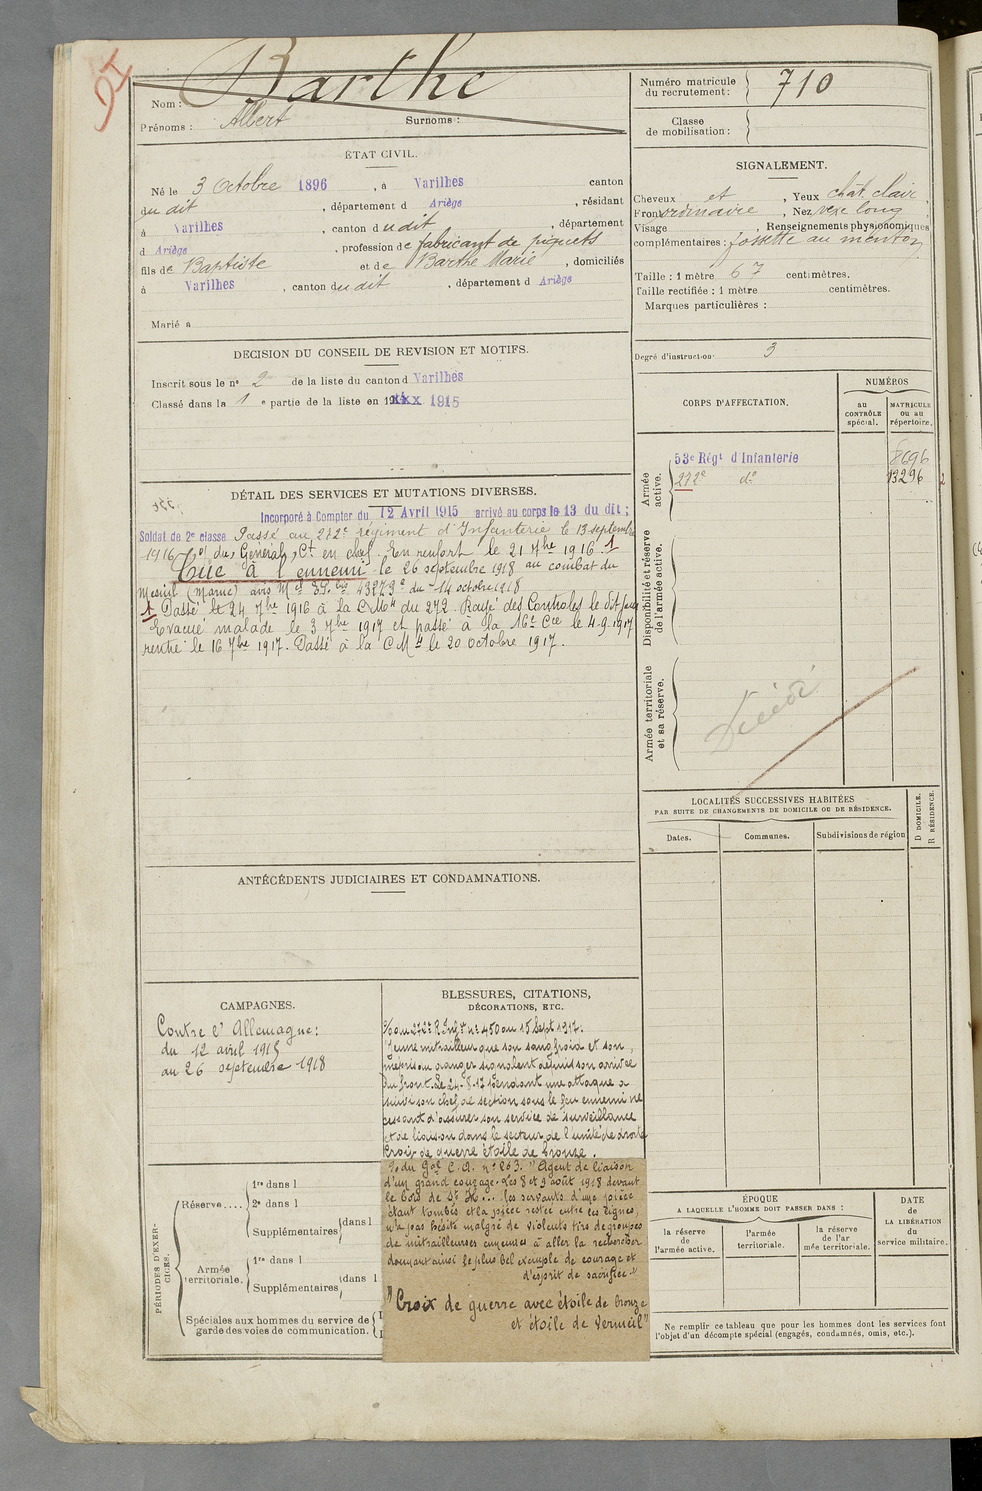 91
Nom : Barthe
Prénoms : Albert Surnoms :
Numéro matricule du recrutement : 710
Classe de mobilisation :
ÉTAT CIVIL.
Né le 3 Octobre 1896, à Varilhes canton
du dit, département d Ariège, résidant
à Varilhes, canton dudit, département
d Ariège, profession de fabricant de piquets
fils de Baptiste et de Barthe Marie, domiciliés
à Varilhes, canton dudit, département d Ariège
Marié à
SIGNALEMENT.
Cheveux et, Yeux chât. clair,
Front ordinaire, Nez vexe long,
Visage, Renseignements physionomiques
complémentaires : fossette au menton
Taille : 1 mètre 67 centimètres.
Taille rectifiée : 1 mètre centimètres.
Marques particulières :
Degré d'instruction 3
DÉCISION DU CONSEIL DE REVISION ET MOTIFS.
Inscrit sous le n° 2 de la liste du canton d Varilhes
Classé dans la 1 e partie de la liste en 1915
DÉTAIL DES SERVICES ET MUTATIONS DIVERSES.
Incorporé à Compter du 12 Avril 1915 arrivé au corps le 13 du dit ;
Soldat de 2e classe Passé au 272e régiment d'Infanterie le 13 septembre
1916 du Général Ct en chef. En renfort le 21 7bre 1916. 1
Tué à l'ennemi le 26 septembre 1918 au combat du
Mesnil (Marne) avis Mel du 14 octobre 1918
1 Passé le 24 7bre 1916 à la C.M. du 272. Rayé des Contrôles le dit jour
Evacué malade le 3 7bre 1917 et passé à la 16e Cie le 4.9.1917
rentré le 16 7bre 1917. Passé à la C M 4 le 20 octobre 1917.
CORPS D'AFFECTATION.
NUMÉROS
au CONTRÔLE spécial.
MATRICULE ou au répertoire.
Armée active.
53e Régt d'Infanterie 8696
272e do 13296
Disponibilité et réserve de l'armée active.
Armée territoriale et sa réserve.
Décédé
LOCALITÉS SUCCESSIVES HABITÉES
PAR SUITE DE CHANGEMENTS DE DOMICILE OU DE RÉSIDENCE.
Dates. Communes. Subdivisions de région
D DOMICILE.
R RÉSIDENCE.
ANTÉCÉDENTS JUDICIAIRES ET CONDAMNATIONS.
CAMPAGNES.
Contre l'Allemagne :
du 12 avril 1915
au 26 septembre 1918
BLESSURES, CITATIONS,
DÉCORATIONS, ETC.
272e R. Inf. n° 450 du 15 Sept 1917.
Jeune mitrailleur que son sang froid et son
mépris du danger signalent depuis son arrivée
au front. Le 24-8-17 pendant une attaque a
suivi son chef de section sous le feu ennemi ne
cessant d'assurer son service de surveillance
et de liaison dans le secteur de l'unité de droite
Croix de guerre étoile de bronze.
du Gal C.A. n° 263. "Agent de liaison
d'un grand courage. Les 8 et 9 août 1918 devant
le bois de St H... les servants d'une pièce
étant tombés et la pièce restée entre les lignes,
n'a pas hésité malgré de violents tirs de groupes
de mitrailleuses ennemies à aller la rechercher
donnant ainsi le plus bel exemple de courage et
d'esprit de sacrifice."
"Croix de guerre avec étoile de bronze
et étoile de vermeil"
PÉRIODES D'EXERCICES.
Réserve....
1re dans l
2e dans l
Supplémentaires dans l
Armée territoriale.
1re dans l
Supplémentaires dans l
Spéciales aux hommes du service de
garde des voies de communication.
ÉPOQUE
A LAQUELLE L'HOMME DOIT PASSER DANS :
la réserve de l'armée active.
l'armée territoriale.
la réserve de l'armée territoriale.
DATE de LA LIBÉRATION du service militaire.
Ne remplir ce tableau que pour les hommes dont les services font
l'objet d'un décompte spécial (engagés, condamnés, omis, etc.).